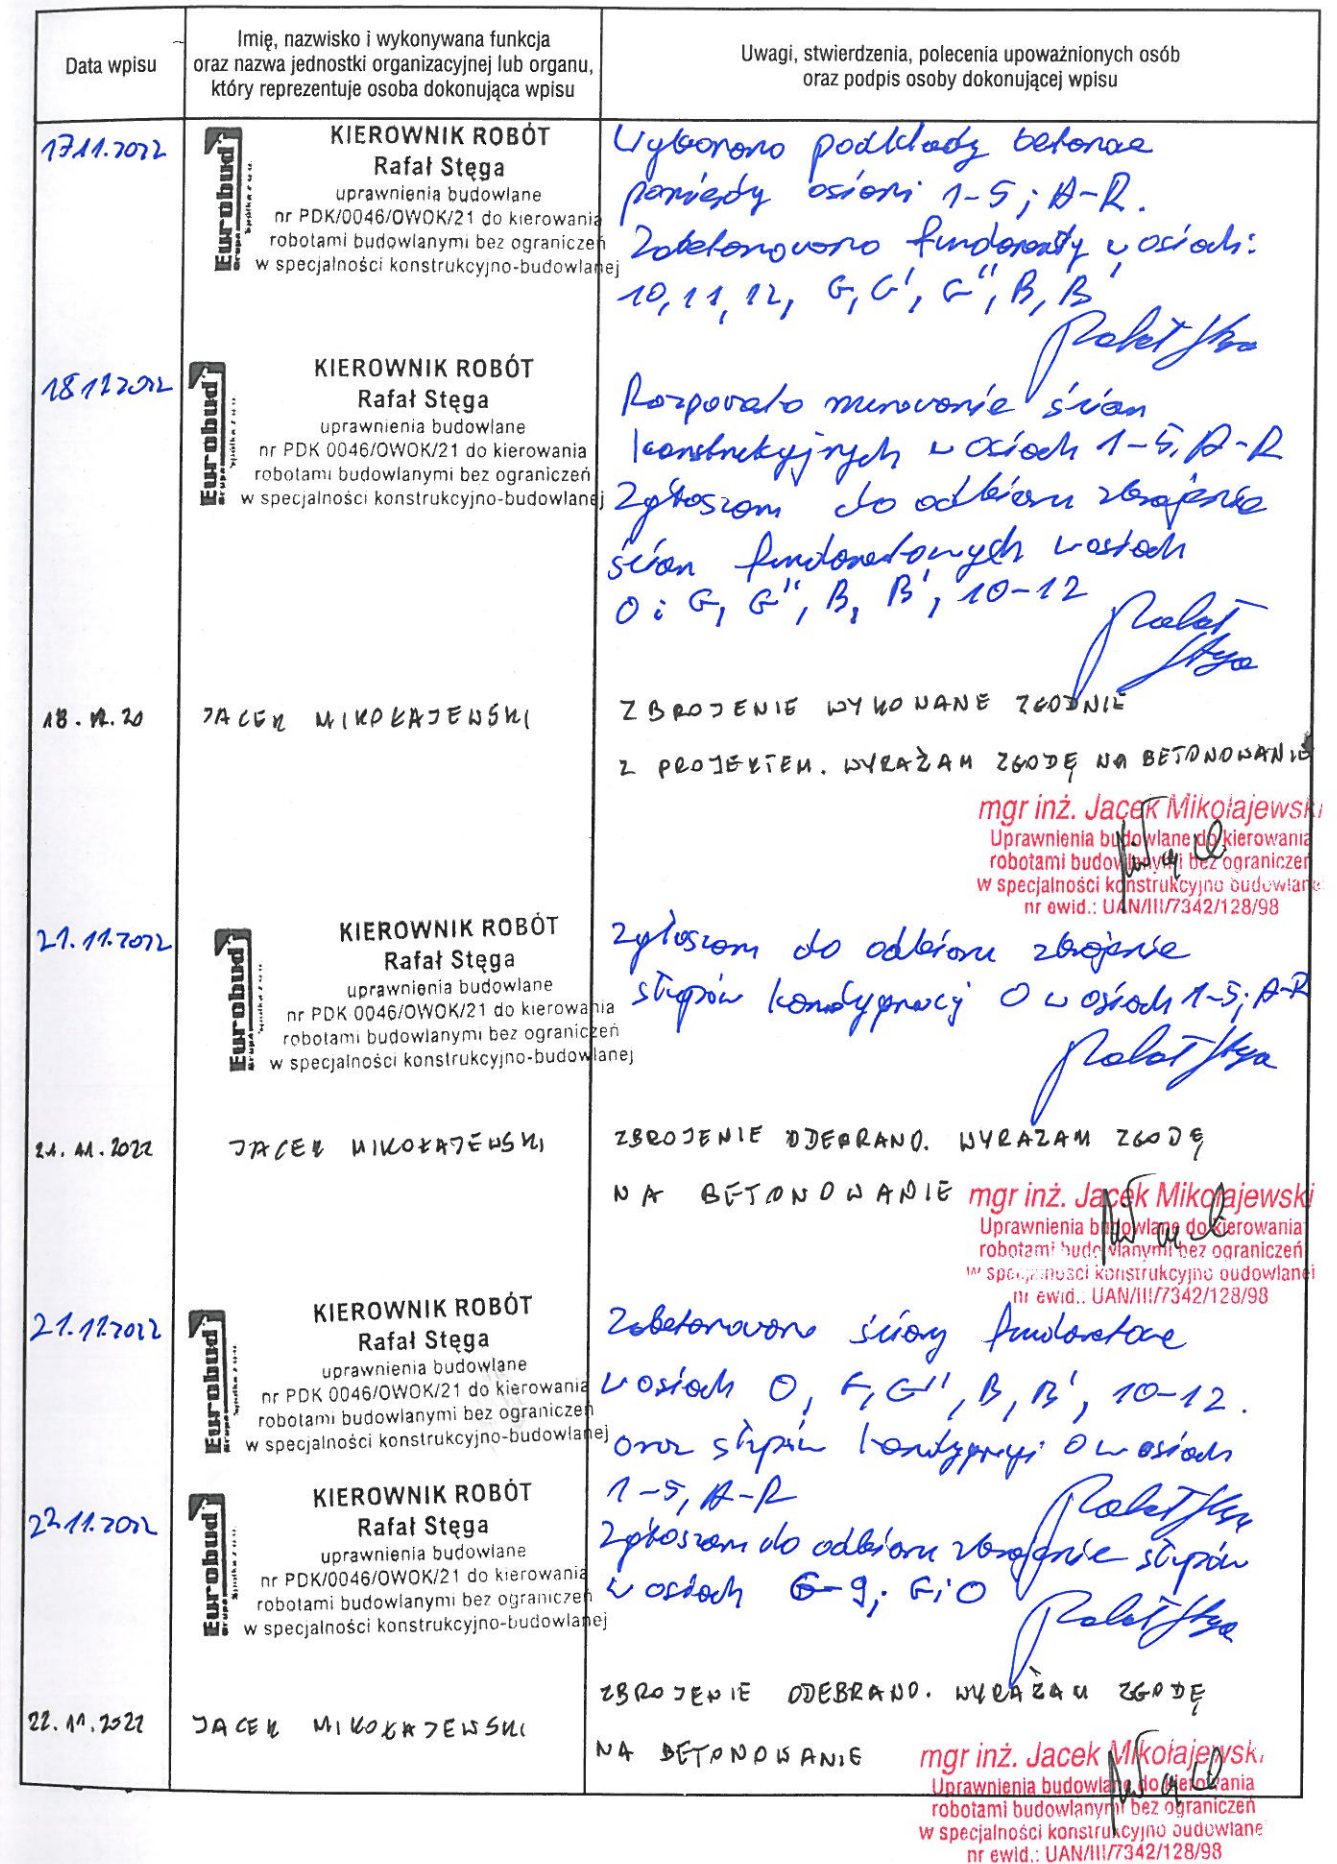 Data wpisu
Imię, nazwisko i wykonywana funkcja
oraz nazwa jednostki organizacyjnej lub organu,
który reprezentuje osoba dokonująca wpisu
Uwagi, stwierdzenia, polecenia upoważnionych osób
oraz podpis osoby dokonującej wpisu
17.11.2022
Eurobud
Grupa
KIEROWNIK ROBÓT
Rafał Stęga
uprawnienia budowlane
nr PDK/0046/OWOK/21 do kierowania
robotami budowlanymi bez ograniczeń
w specjalności konstrukcyjno-budowlanej
Wykonano podkłady betonowe
pomiędzy osiami 1-5; A-R.
Zabetonowano fundamenty w osiach:
10, 11, 12, G, G', G'', B, B'
Rafał Stęga
18.11.2022
Eurobud
Grupa
KIEROWNIK ROBÓT
Rafał Stęga
uprawnienia budowlane
nr PDK 0046/OWOK/21 do kierowania
robotami budowlanymi bez ograniczeń
w specjalności konstrukcyjno-budowlanej
murowanie ścian
konstrukcyjnych w osiach 1-5, A-R
Zgłaszam do odbioru zbrojenie
ścian fundamentowych w osiach
O i G, G'', B, B', 10-12
Rafał Stęga
18.11.20
JACEK MIKOŁAJEWSKI
ZBROJENIE WYKONANE ZGODNIE
Z PROJEKTEM. WYRAŻAM ZGODĘ NA BETONOWANIE
mgr inż. Jacek Mikołajewski
Uprawnienia budowlane do kierowania
robotami budowlanymi bez ograniczeń
w specjalności konstrukcyjno budowlane
nr ewid.: UAN/III/7342/128/98
21.11.2022
Eurobud
Grupa
KIEROWNIK ROBÓT
Rafał Stęga
uprawnienia budowlane
nr PDK 0046/OWOK/21 do kierowania
robotami budowlanymi bez ograniczeń
w specjalności konstrukcyjno-budowlanej
Zgłaszam do odbioru zbrojenie
słupów kondygnacji O w osiach 1-5; A-R
Rafał Stęga
21.11.2022
JACEK MIKOŁAJEWSKI
ZBROJENIE ODEBRANO. WYRAŻAM ZGODĘ
NA BETONOWANIE
mgr inż. Jacek Mikołajewski
Uprawnienia budowlane do kierowania
robotami budowlanymi bez ograniczeń
w specjalności konstrukcyjno budowlanej
nr ewid.: UAN/III/7342/128/98
21.11.2022
Eurobud
Grupa
KIEROWNIK ROBÓT
Rafał Stęga
uprawnienia budowlane
nr PDK 0046/OWOK/21 do kierowania
robotami budowlanymi bez ograniczeń
w specjalności konstrukcyjno-budowlanej
Zabetonowano ściany fundamentowe
w osiach O, G, G'', B, B', 10-12.
oraz słupów kondygnacji O w osiach
1-5, A-R
Rafał Stęga
22.11.2022
Eurobud
Grupa
KIEROWNIK ROBÓT
Rafał Stęga
uprawnienia budowlane
nr PDK/0046/OWOK/21 do kierowania
robotami budowlanymi bez ograniczeń
w specjalności konstrukcyjno-budowlanej
Zgłaszam do odbioru zbrojenie słupów
w osiach 6-9; G; O
Rafał Stęga
22.11.2022
JACEK MIKOŁAJEWSKI
ZBROJENIE ODEBRANO. WYRAŻAM ZGODĘ
NA BETONOWANIE
mgr inż. Jacek Mikołajewski
Uprawnienia budowlane do kierowania
robotami budowlanymi bez ograniczeń
w specjalności konstrukcyjno budowlane
nr ewid.: UAN/III/7342/128/98